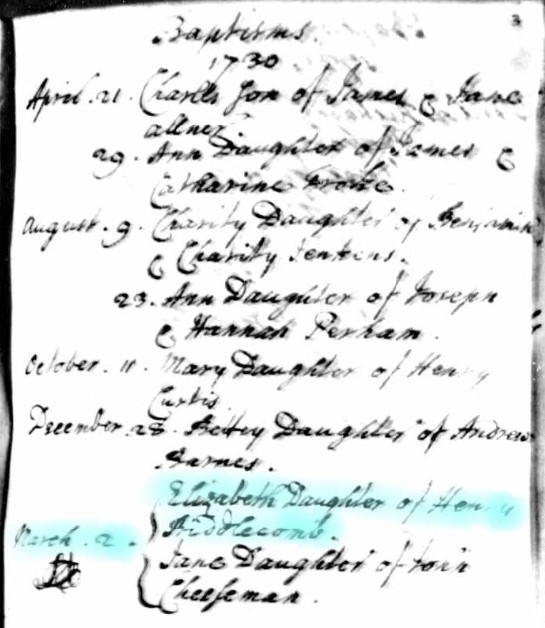 3
Baptisms.
1730
April. 21. Charles Son of James & Jane
allner.
29. Ann Daughter of James &
Catharine
August. 9. Charity Daughter of Benjamin
& Charity Jenkens.
23. Ann Daughter of Joseph
& Hannah Perham.
October. 11. Mary Daughter of Henry
Curtis
December. 28. Bettey Daughter of Andrew
Barnes.
Elizabeth Daughter of Henry
March. 2. Hiddlecomb.
Jane Daughter of John
Cheeseman.